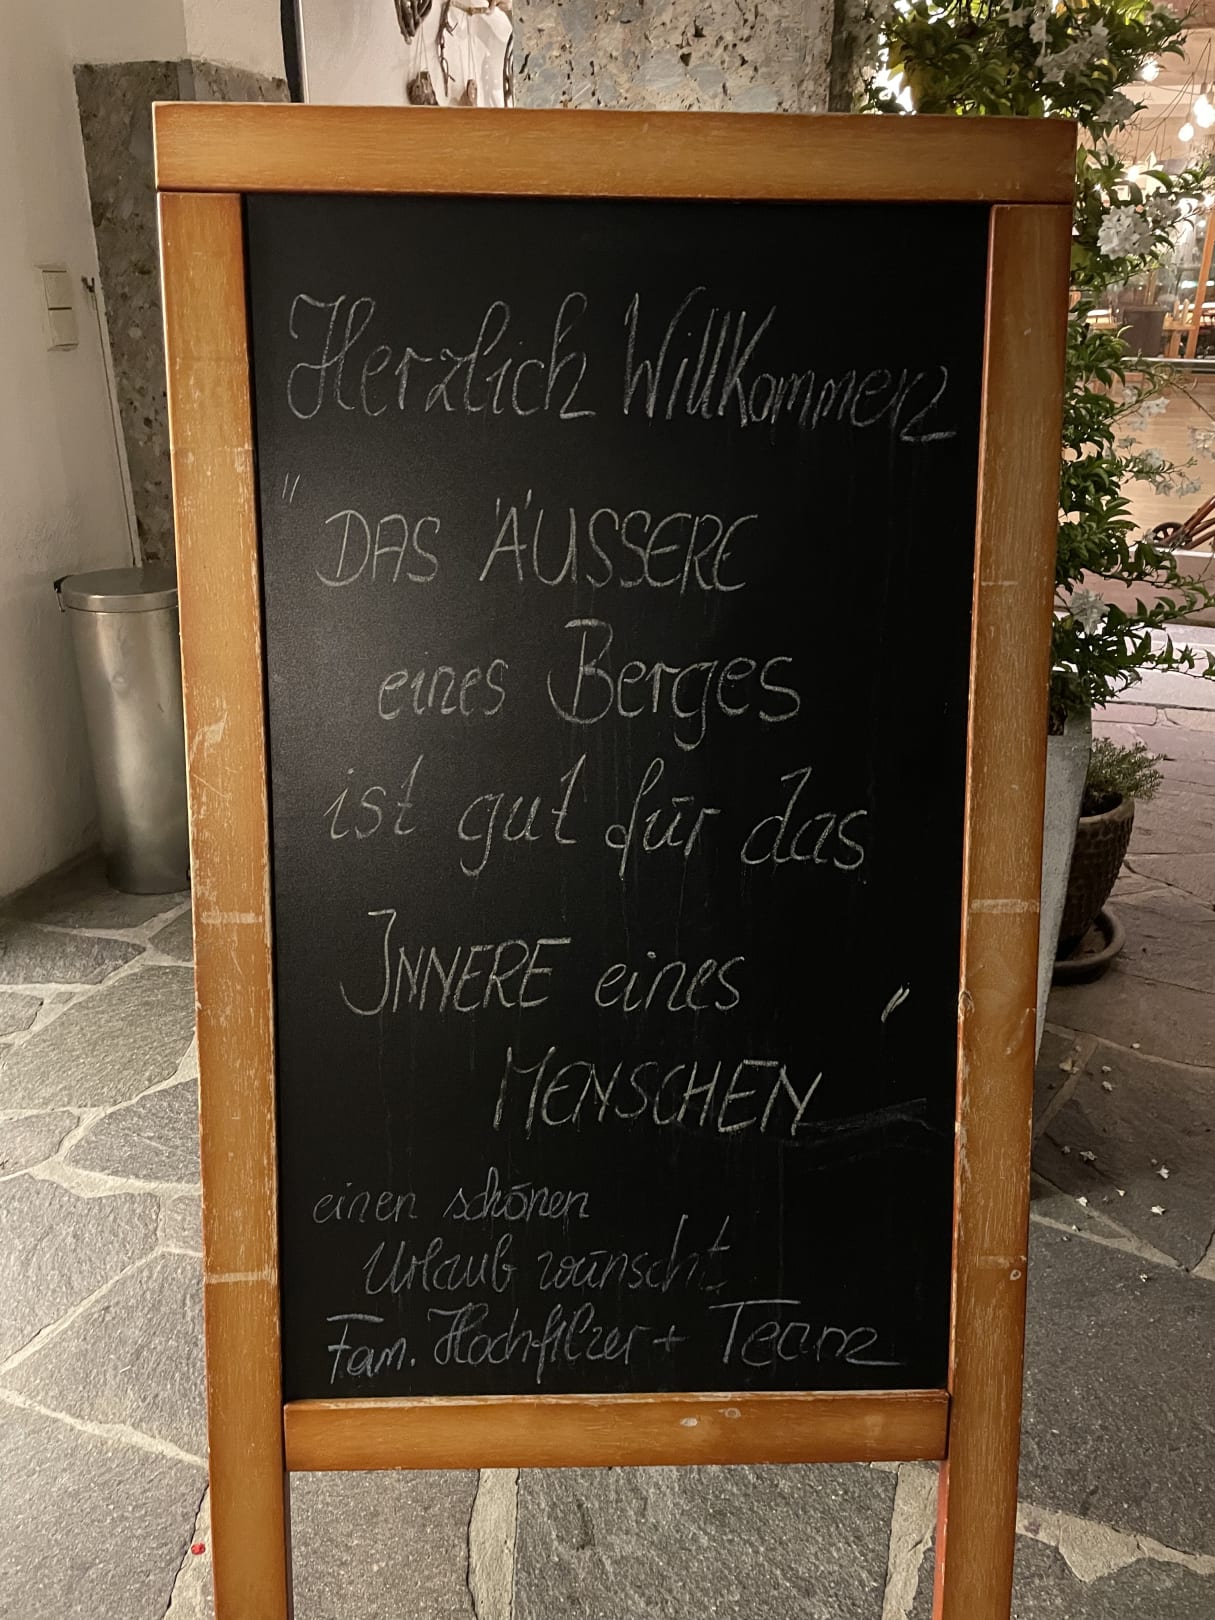 Herzlich Willkommen
"DAS ÄUSSERE
eines Berges
ist gut für das
INNERE eines
MENSCHEN"
einen schönen
Urlaub wünscht
Fam. Hochfilzer + Team